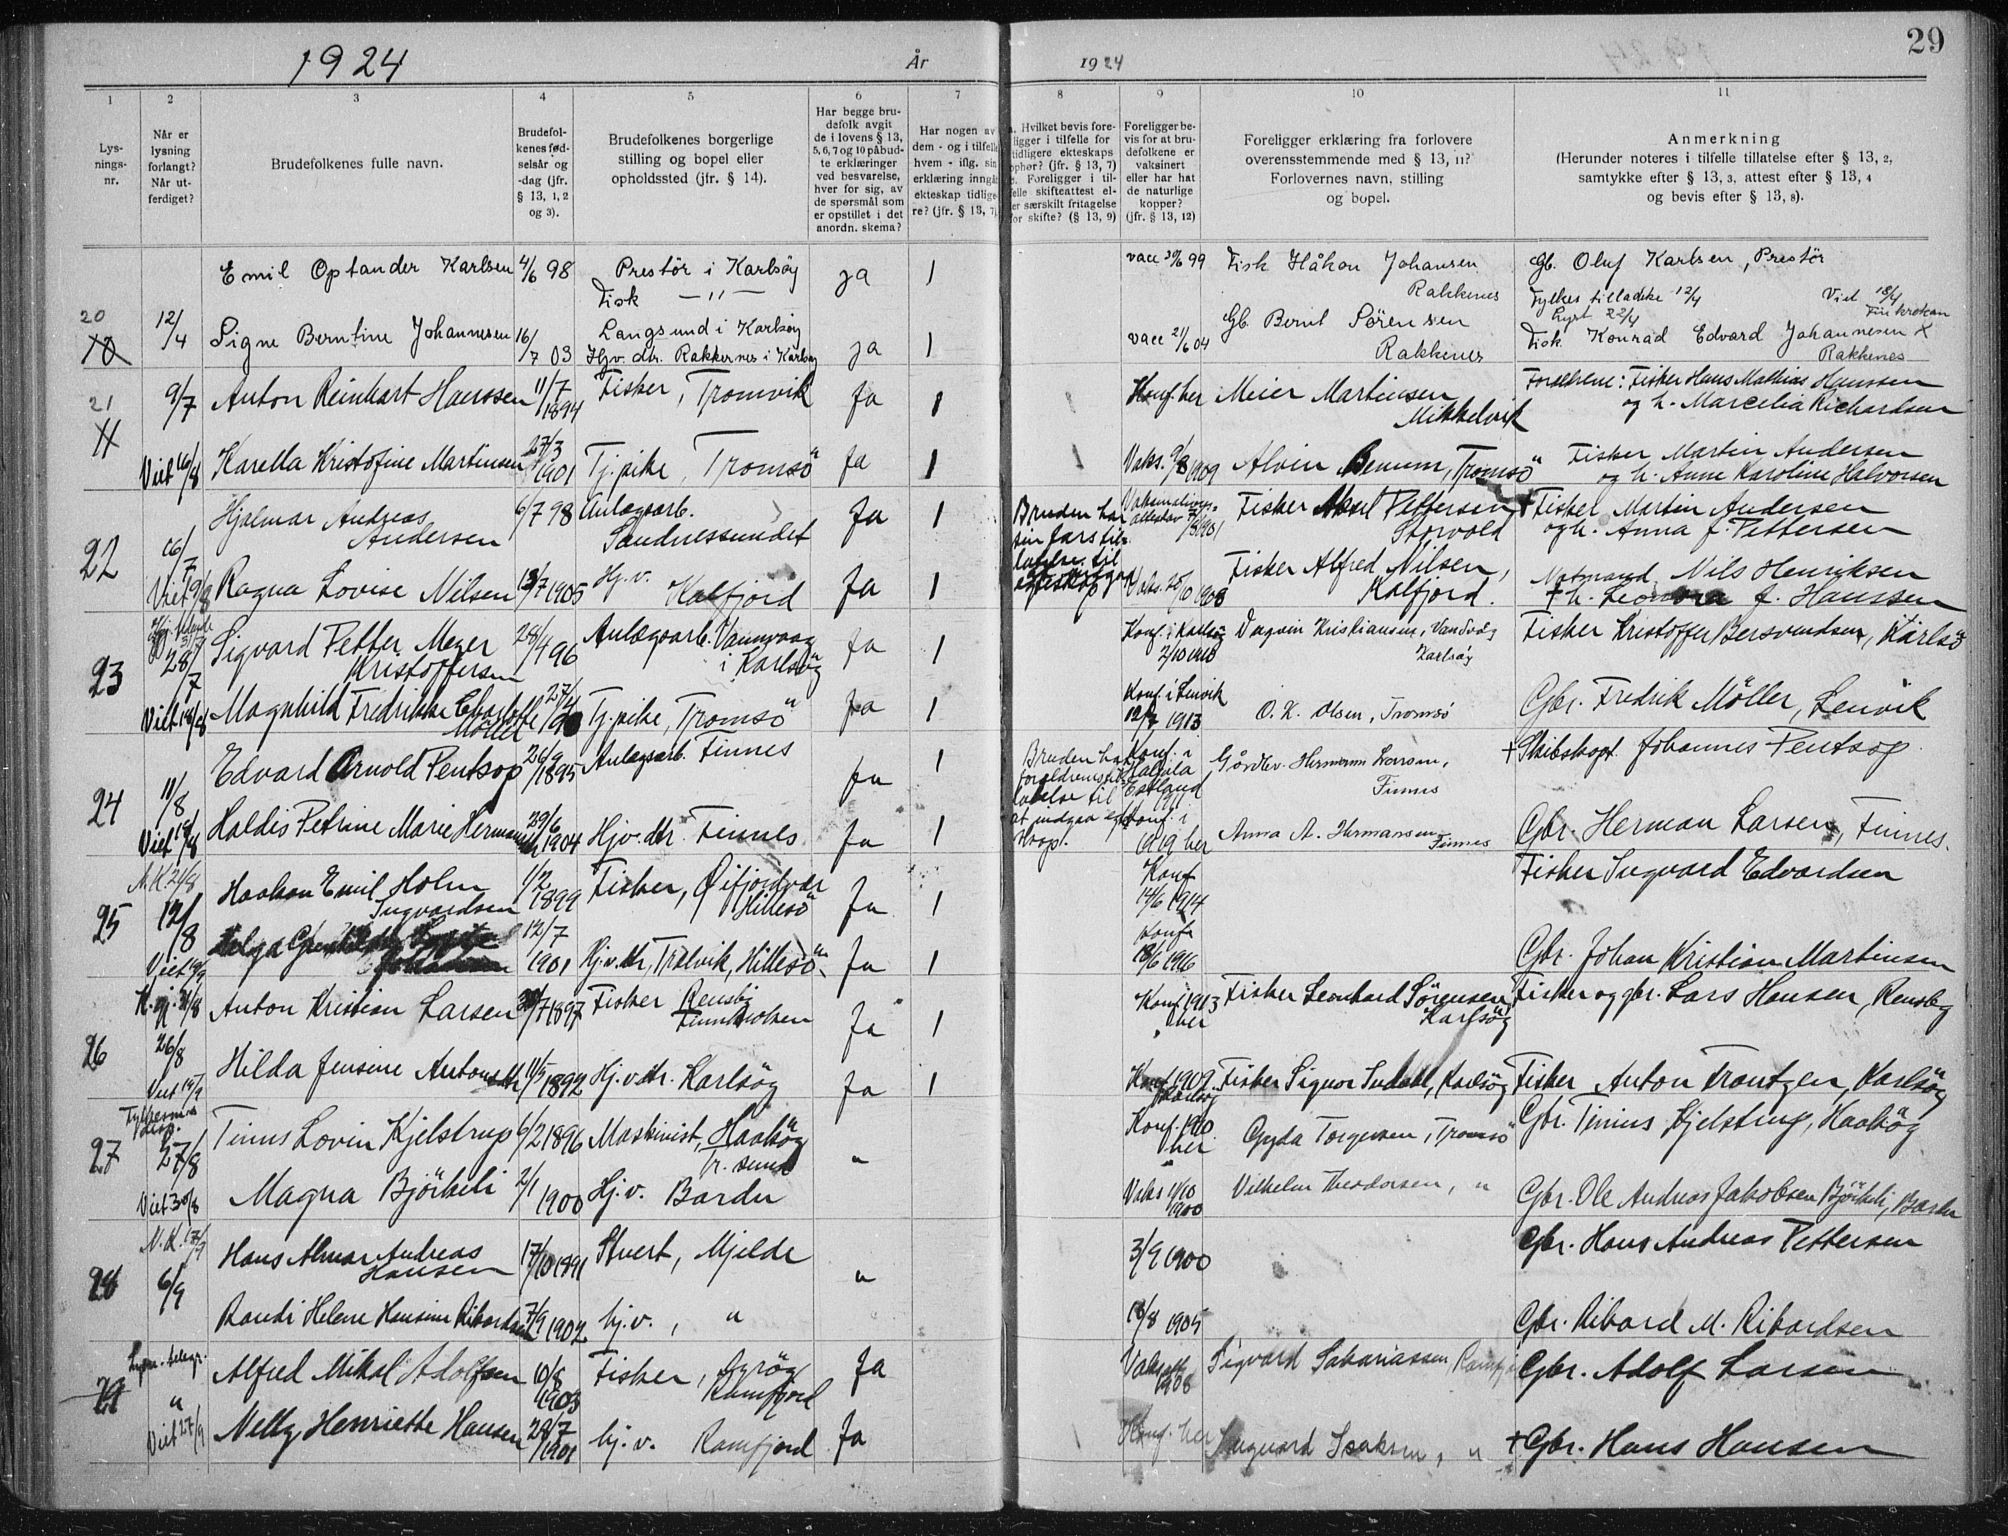 1924
År
1924
29
1
2
3
4
5
6
7
8
9
10
11
Lys-
nings-
nr.
Når er
lysning
forlangt?
Når ut-
ferdiget?
Brudefolkenes fulle navn.
Brudefol-
kenes fød-
selsår og
-dag (jfr.
§ 13, 1, 2
og 3).
Brudefolkenes borgerlige
stilling og bopel eller
opholdssted (jfr. § 14).
Har begge bru-
defolk avgit
de i lovens § 13,
5, 6, 7 og 10 påbud-
te erklæringer
ved besvarelse,
hver for sig, av
de spørsmål som
er opstillet i det
anordn. skema?
Har nogen av
dem - og i tilfelle
hvem - iflg. sin
erklæring inngå
ekteskap tidlige-
re? (jfr. § 13, 7)
a. Hvilket bevis fore-
ligger i tilfelle for
tidligere ekteskaps
ophør? (jfr. § 13, 7)
Foreligger i til-
felle skifteattest el-
er særskilt fritagelse
for skifte? (§ 13, 9)
Foreligger be-
vis for at bru-
defolkene er
vaksinert
eller har hat
de naturlige
kopper?
(jfr. § 13, 12)
Foreligger erklæring fra forlovere
overensstemmende med § 13, 11?
Forlovernes navn, stilling
og bopel.
Anmerkning
(Herunder noteres i tilfelle tillatelse efter § 13, 2,
samtykke efter § 13, 3, attest efter § 13, 4
og bevis efter § 13, 8).
Emil Optander Karlsen 4/6 98 Prestör i Karlsöy Fisk — " — ja 1 vacc 30/6 99 Fisk Håkon Johansen Rakkenes Gb. Oluf Karlsen, Prestör
Fylkes tilladelse 12/4 Viet 18/4
Lyst 22/4 Finkroken
20 10 12/4 Signe Berntine Johannesen 16/7 03 Langsund i Karlsöy Hjv. dtr. Rakkenes i Karlsöy ja 1 vacc 21/6 04 Gb. Bernt Sörensen Rakkenes Fisk. Konrad Edvard Johannesen X Rakkenes
21 11 9/7 Anton Reinhart Hanssen 11/7 1894 Fisker, Tromvik Ja 1 Konf. her Meier Martinsen Mikkelvik Foreldrene: Fisker Hans Mathias Hanssen
og h. Marcelia Richardsen
Viet 16/8 Karella Kristofine Martinsen 27/3 1901 Tj. pike, Tromsö Ja 1 Vaks. 9/8 1909 Alvin Benum, Tromsö Fisker Martin Andersen
og h. Anne Karoline Halvorsen
22 16/7 Hjalmar Andreas Andersen 6/7 98 Anlægsarb. Sandnessundet Ja 1 Bruden har sin fars til- latelse til Fisker Aksel Pettersen Storvold † Fisker Martin Andersen
og h. Anna f. Pettersen
Viet 9/8 Ragna Lovise Nilsen 13/7 1905 Hj. v. Kalfjord Ja 1 Fisker Alfred Nilsen, Kalfjord. Nils Henriksen
† h. Leonora f. Hanssen
23 28/7 Sigvard Petter Meyer Kristoffersen 28/4 96 Anlægsarb. Vannvaag i Karlsöy Ja 1 Konf. i Karlsöy 2/10 1910 Dagvin Kristiansen, Vandvåg Karlsöy Fisker Kristoffer Bersvendsen, Karlsö
Viet 18/8 Magnhild Fredrikke Charlotte Möller 27/4 Tj. pike, Tromsö Ja 1 Konf. i Lenvik 1913 O. K. Olsen, Tromsö Gbr. Fredrik Möller, Lenvik
24 11/8 Edvard Arnold Pentsop 26/9 1895 Anlægsarb. Finnes Ja 1 Bruden har foreldrenes til- latelse til at indgaa ekte- skap. Konf. i Estland 1911 Gårdbr. Hermann Larsen, Finnes † Skibskapt. Johannes Pentsop
Viet 19/8 Haldis Petrine Marie Hermansen 29/6 1904 Hjv. dtr. Finnes Ja 1 Konf. i 1919 her Anna A. Hermansen Finnes Gbr. Herman Larsen, Finnes.
N. K. 21/8
25 12/8 Haakon Emil Holm Sugvardsen 1/2 1899 Fisker, Öifjordvær Hillesö Ja 1 Konf 14/6 1914 Fisker Sugvard Edvardsen
Viet Helga 12/7 1901 Hj. v. dtr, Trælvik, Hillesö Ja 1 Konf 18/6 1916 Gbr. Johan Kristian Martinsen
26 26/8 Anton Kristian Larsen 1897 Fisker Rensby Finkroken Ja 1 Konf 1913 her Fisker Leonhard Sörensen, Karlsöy Fisker og gbr. Lars Hansen, Rensby
Viet Hilda Jensine Antonsdtr 11/5 1892 Hj. v. dtr. Karlsöy Ja 1 Konf. 1909 Karlsöy Fisker Signor Karlsöy Fisker Anton Frantzen, Karlsöy
27 27/8 Tinus Lovin Kjelstrup 6/2 1896 Maskinist, Haaköy Tr. sund " Konf. 1910 her Gyda Torgersen, Tromsö Gbr. Tinius Kjelstrup, Haaköy
Viet 30/8 Magna Björkeli 2/1 1900 Hj. v. Bardu Vaks 11/10 1900 Vilhelm Theodorsen, " Gbr. Ole Andreas Jakobsen Björkli, Bardu
N. K. 17/9
28 6/9 Hans Almar Andreas Hansen 17/10 1891 Stuert, Mjelde " 3/9 1900 Gbr. Hans Andreas Pettersen
Randi Helene Hansine Rikardsen 7/9 1902 hj. v., " 18/8 1905 Gbr. Rikard M. Rikardsen
29 " Alfred Mikal Adolfsen 10/8 1903 Fisker, Ramfjord Ja Vaksatt 1908 Sigvard Sakariassen Ramfj Gbr. Adolf Larsen
Viet 27/9 Nelly Henriette Hansen 28/7 1901 hj. v. Ramfjord Ja Konf. her Sugvard Isaksen, " † Gbr. Hans Hansen